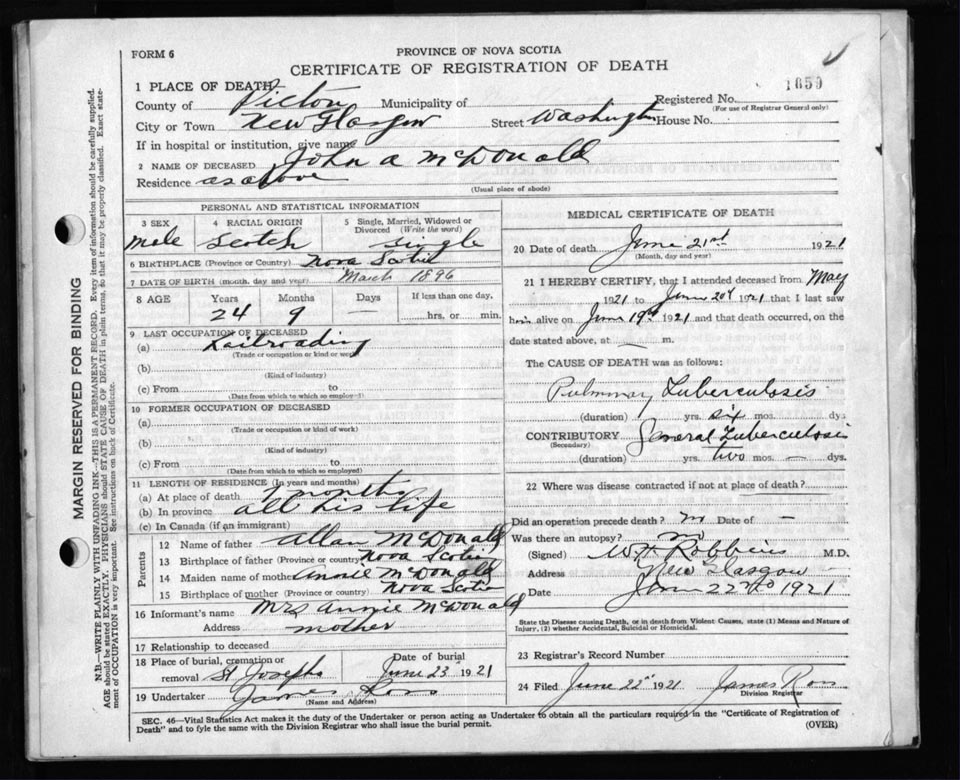 FORM 6
PROVINCE OF NOVA SCOTIA
CERTIFICATE OF REGISTRATION OF DEATH
1659
1 PLACE OF DEATH
County of Pictou Municipality of Registered No.
(For use of Registrar General only)
City or Town New Glasgow Street Washington House No.
If in hospital or institution, give name
2 NAME OF DECEASED John A McDonald
Residence as above
(Usual place of abode)
PERSONAL AND STATISTICAL INFORMATION
3 SEX 4 RACIAL ORIGIN 5 Single, Married, Widowed or Divorced (Write the word)
Male Scotch Single
6 BIRTHPLACE (Province or Country) Nova Scotia
7 DATE OF BIRTH (month, day and year) March 1896
8 AGE Years Months Days If less than one day,
24 9 — hrs. or min.
9 LAST OCCUPATION OF DECEASED
(a) Railroading
(Trade or occupation or kind or work)
(b)
(Kind of industry)
(c) From to
(Date from which to which so employed)
10 FORMER OCCUPATION OF DECEASED
(a)
(Trade or occupation or kind of work)
(b)
(Kind of industry)
(c) From to
(Date from which to which so employed)
11 LENGTH OF RESIDENCE (In years and months)
(a) At place of death months
(b) In province all his life
(c) In Canada (if an immigrant)
Parents
12 Name of father Allan McDonald
13 Birthplace of father (Province or country) Nova Scotia
14 Maiden name of mother Annie McDonald
15 Birthplace of mother (Province or country) Nova Scotia
16 Informant's name Mrs Annie McDonald
Address mother
17 Relationship to deceased
18 Place of burial, cremation or removal St Josephs Date of burial June 23 1921
19 Undertaker James
(Name and Address)
MEDICAL CERTIFICATE OF DEATH
20 Date of death June 21st 1921
(Month, day and year)
21 I HEREBY CERTIFY, that I attended deceased from May
1921 to June 20 1921 that I last saw
him alive on June 19 1921 and that death occurred, on the
date stated above, at — m.
The CAUSE OF DEATH was as follows:
Pulmonary Tuberculosis
(duration) yrs. six mos. dys
CONTRIBUTORY General Tuberculosis
(Secondary)
(duration) yrs. two mos. — dys.
22 Where was disease contracted if not at place of death?
Did an operation precede death? no Date of —
Was there an autopsy? no
(Signed) W H Robbins M.D.
Address New Glasgow
Date June 22nd 1921
State the Disease causing Death, or in death from Violent Causes, state (1) Means and Nature of
Injury, (2) whether Accidental, Suicidal or Homicidal.
23 Registrar's Record Number
24 Filed June 22 1921 James Ross
Division Registrar
SEC. 46—Vital Statistics Act makes it the duty of the Undertaker or person acting as Undertaker to obtain all the particulars required in the "Certificate of Registration of
Death" and to fyle the same with the Division Registrar who shall issue the burial permit. (OVER)
MARGIN RESERVED FOR BINDING
N.B.—WRITE PLAINLY WITH UNFADING INK—THIS IS A PERMANENT RECORD. Every item of information should be carefully supplied.
AGE should be stated EXACTLY. PHYSICIANS should STATE CAUSE OF DEATH in plain terms, so that it may be properly classified. Exact state-
ment of OCCUPATION is very important. See instructions on back of Certificate.